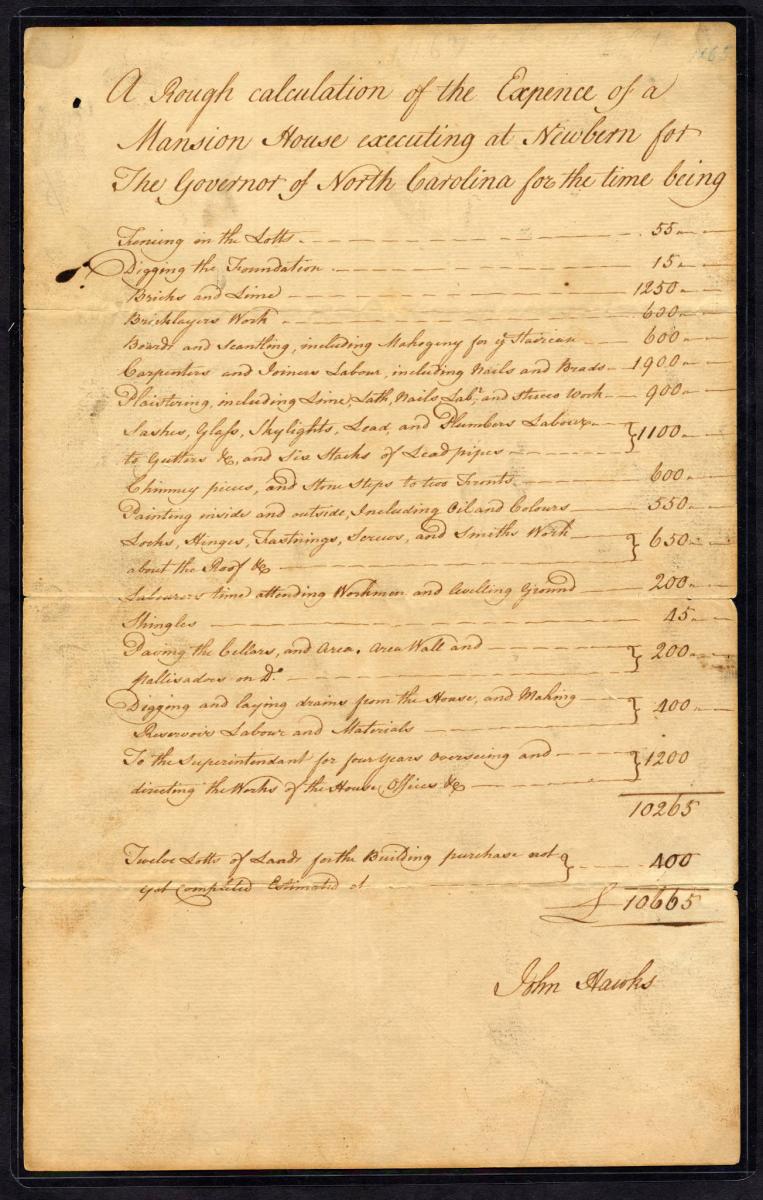 A Rough calculation of the Expence of a
Mansion House executing at Newbern for
The Governor of North Carolina for the time being
Fencing in the Lotts 55
Digging the Foundation 15
Bricks and Lime 1250
Bricklayers Work 600
Boards and Scantling, including Mahogeny for ye Staircase 600
Carpenters and Joiners Labour, including Nails and Brads 1900
Plaistering, including Lime, Lath, Nails, Labr. and Stucco Work 900
Sashes, Glass, Skylights, Lead, and Plumbers Labour
to Gutters &c, and Six Stacks of Lead pipes } 1100
Chimney pieces, and Stone Steps to two Fronts 600
Painting inside and outside, Including Oil and Colours 550
Locks, Hinges, Fastnings, Screws, and Smiths Work
about the Roof &c } 650
Labourers time attending Workmen and levelling Ground 200
Shingles 45
Paving the Cellars, and Area. Area Wall and
Pallisadoes on Do. } 200
Digging and laying drains from the House, and Making
Reservoirs Labour and Materials } 400
To the Superintendant for four Years Overseeing and
directing the Works of the House Offices &c } 1200
10265
Twelve Lotts of Land for the Building purchase not
yet Completed Estimated at } 400
£ 10665
John Hawks